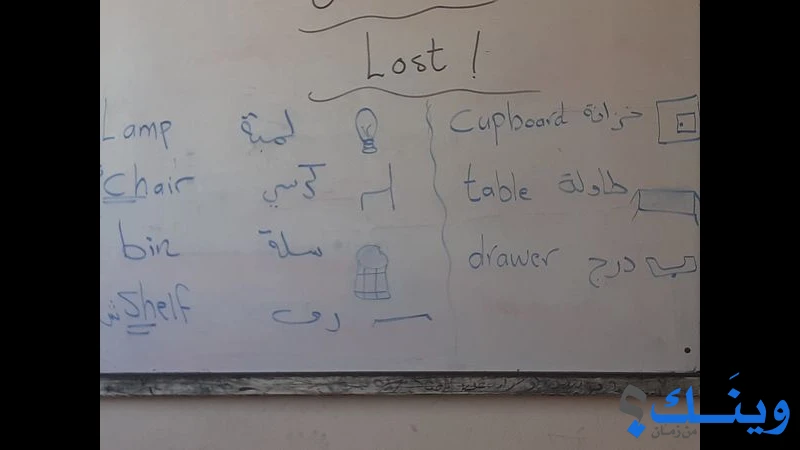 Lost !
Lamp لمبة
Chair كرسي
bin سلة
Shelf رف
Cupboard خزانة
table طاولة
drawer درج
وينَـك؟
من زمان